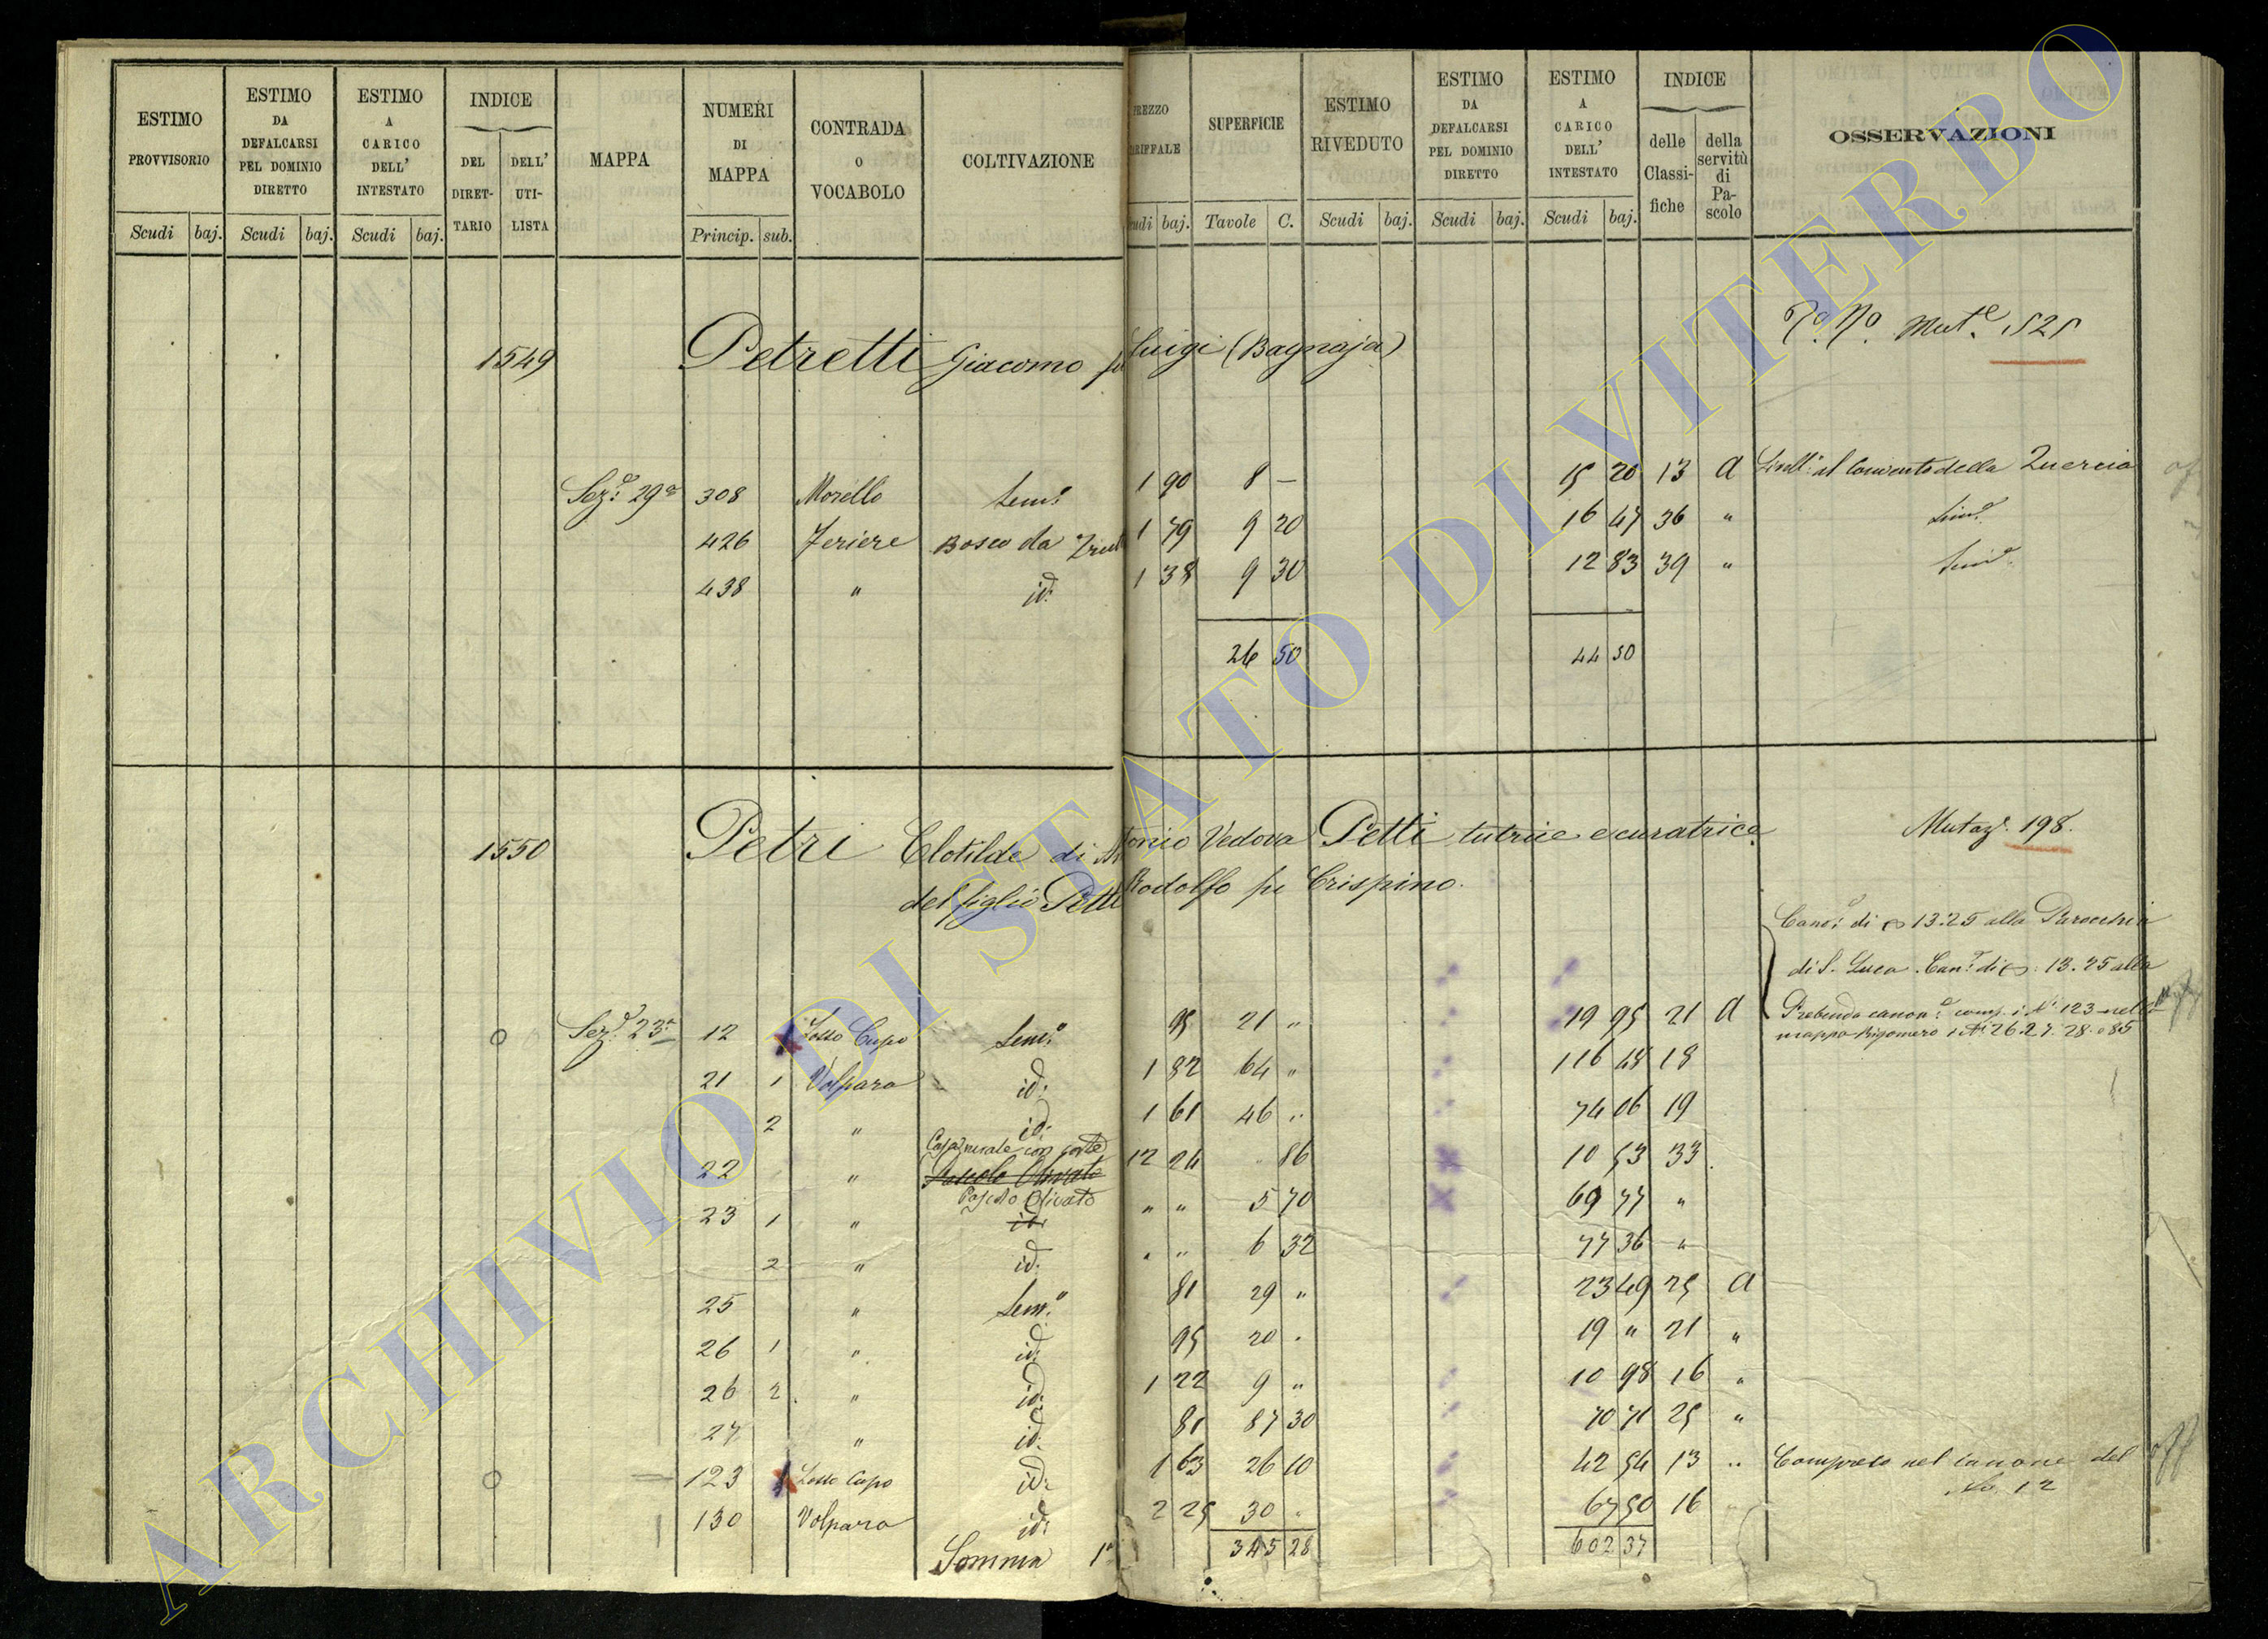 ESTIMO PROVVISORIO | ESTIMO DA DEFALCARSI PEL DOMINIO DIRETTO | ESTIMO A CARICO DELL' INTESTATO | INDICE DEL DIRET-TARIO | DELL' UTI-LISTA | MAPPA | NUMERI DI MAPPA | CONTRADA O VOCABOLO | COLTIVAZIONE | PREZZO TARIFFALE | SUPERFICIE | ESTIMO RIVEDUTO | ESTIMO DA DEFALCARSI PEL DOMINIO DIRETTO | ESTIMO A CARICO DELL' INTESTATO | INDICE delle Classi-fiche | della servitù di Pa-scolo | OSSERVAZIONI
Scudi baj. Scudi baj. Scudi baj. Princip. sub. Scudi baj. Tavole C. Scudi baj. Scudi baj. Scudi baj.
1549 Petretti Giacomo fu Luigi (Bagnaja) Mut.e 1525
Sez.e 29a 308 Morello Sem.o 1 90 8 — 15 20 13 a Livell.o al Convento della Quercia
426 Feriere Bosco da 1 79 9 20 16 47 36 "
438 " id. 1 38 9 30 12 83 39 "
26 50 44 50
1550 Petri Clotilde di Antonio Vedova Petti tutrice e curatrice Mutaz.e 198.
del figlio Petti Rodolfo fu Crispino.
Cano.e di 13:25 alla Parocchia
di S. Luca. Can.e di 13.25 alla
Sez.e 23a 12 Fosso Cupo Sem.o 95 21 " 19 95 21 a Prebenda canon.e comp. i N.i 123 nella
mappa Rigomero i N.i 26.27.28. e 85
21 1 Volpara id. 1 82 64 " 116 48 18
2 " id. 1 61 46 " 74 06 19
Casa rurale con corte
22 " Pascolo Olivato 12 24 " 86 10 53 33
Pascolo Olivato
23 1 " id. " " 5 70 69 77 "
2 " id. " " 6 32 77 36 "
25 " Sem.o 81 29 " 23 49 25 a
26 1 " id. 95 20 " 19 " 21 "
26 2 " id. 1 22 9 " 10 98 16 "
27 " id. 81 87 30 70 71 25 "
123 Fosso Cupo id. 1 63 26 10 42 54 13 " Compreso nel canone del
No. 12
130 Volpara id. 2 25 30 " 67 50 16
Somma 1a 345 28 602 37
ARCHIVIO DI STATO DI VITERBO